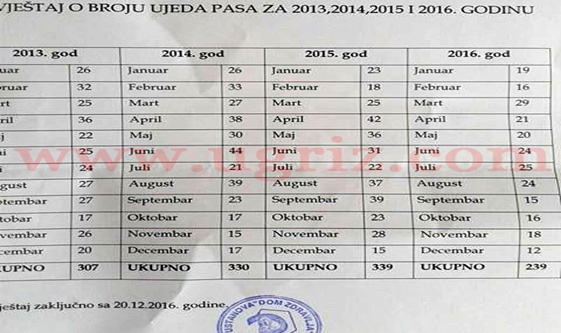 VJEŠTAJ O BROJU UJEDA PASA ZA 2013,2014,2015 I 2016. GODINU
2013. god 2014. god 2015. god 2016. god
nuar 26 Januar 26 Januar 23 Januar 19
ruar 32 Februar 33 Februar 18 Februar 16
rt 25 Mart 27 Mart 25 Mart 29
ril 36 April 38 April 42 April 21
j 22 Maj 30 Maj 36 Maj 20
ni 25 Juni 44 Juni 31 Juni 24
i 24 Juli 21 Juli 22 Juli 25
gust 27 August 39 August 37 August 24
ptembar 27 Septembar 23 Septembar 39 Septembar 15
tobar 17 Oktobar 17 Oktobar 23 Oktobar 16
vembar 26 Novembar 15 Novembar 28 Novembar 18
cembar 20 Decembar 17 Decembar 15 Decembar 12
KUPNO 307 UKUPNO 330 UKUPNO 339 UKUPNO 239
www.ugriz.com
ještaj zaključno sa 20.12.2016. godine.
USTANOVA "DOM ZDRAVLJA